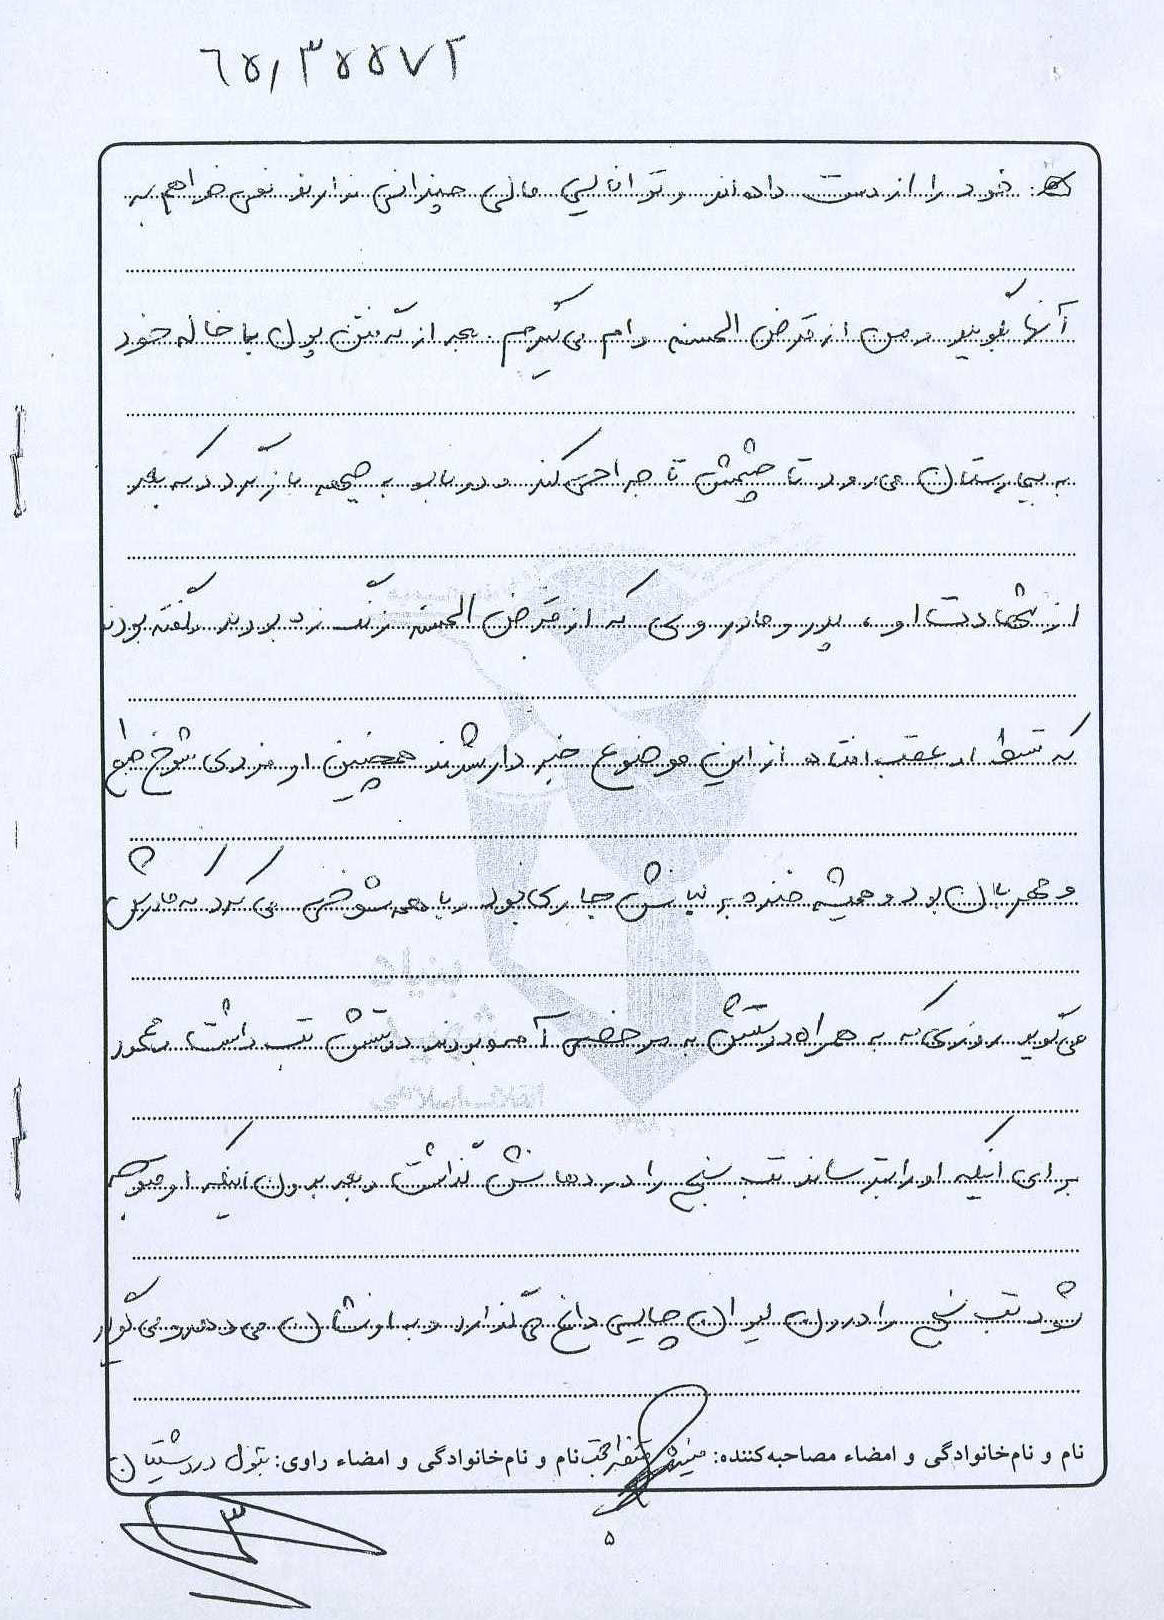 ٦٥/٣٥٥٧٢
خود را از دست داده‌اند و توانایی مالی چندانی ندارند نمی خواهم به
آنها بگویند و من از قرض الحسنه وام می گیرم. بعد از گرفتن پول با خاله خود
به بیمارستان می رود تا چشمش تا جراحی کند و دوباره به جبهه بازگردد که بعد
از شهادت او، پدر و مادر وی که از قرض الحسنه زنگ زده بودند و گفته بودند
که قسط او عقب افتاده از این موضوع خبردار شدند همچنین او فردی شوخ طبع
و مهربان بود و همیشه خنده بر لبانش جاری بود و با همه شوخی می کرد که مادرش
می گوید روزی که به همراه دوستش به مرخصی آمده بودند دوستش تب داشت محمود
برای اینکه او را بترساند تب سنج را در دهانش گذاشت و بعد بدون اینکه او متوجه
شود تب سنج را درون لیوان چایی داغ می گذارد و به او نشان می دهد و می گوید
نام و نام‌خانوادگی و امضاء مصاحبه‌کننده: نام و نام‌خانوادگی و امضاء راوی: بتول
۵
۳
بنیاد
شهید
انقلاب اسلامی